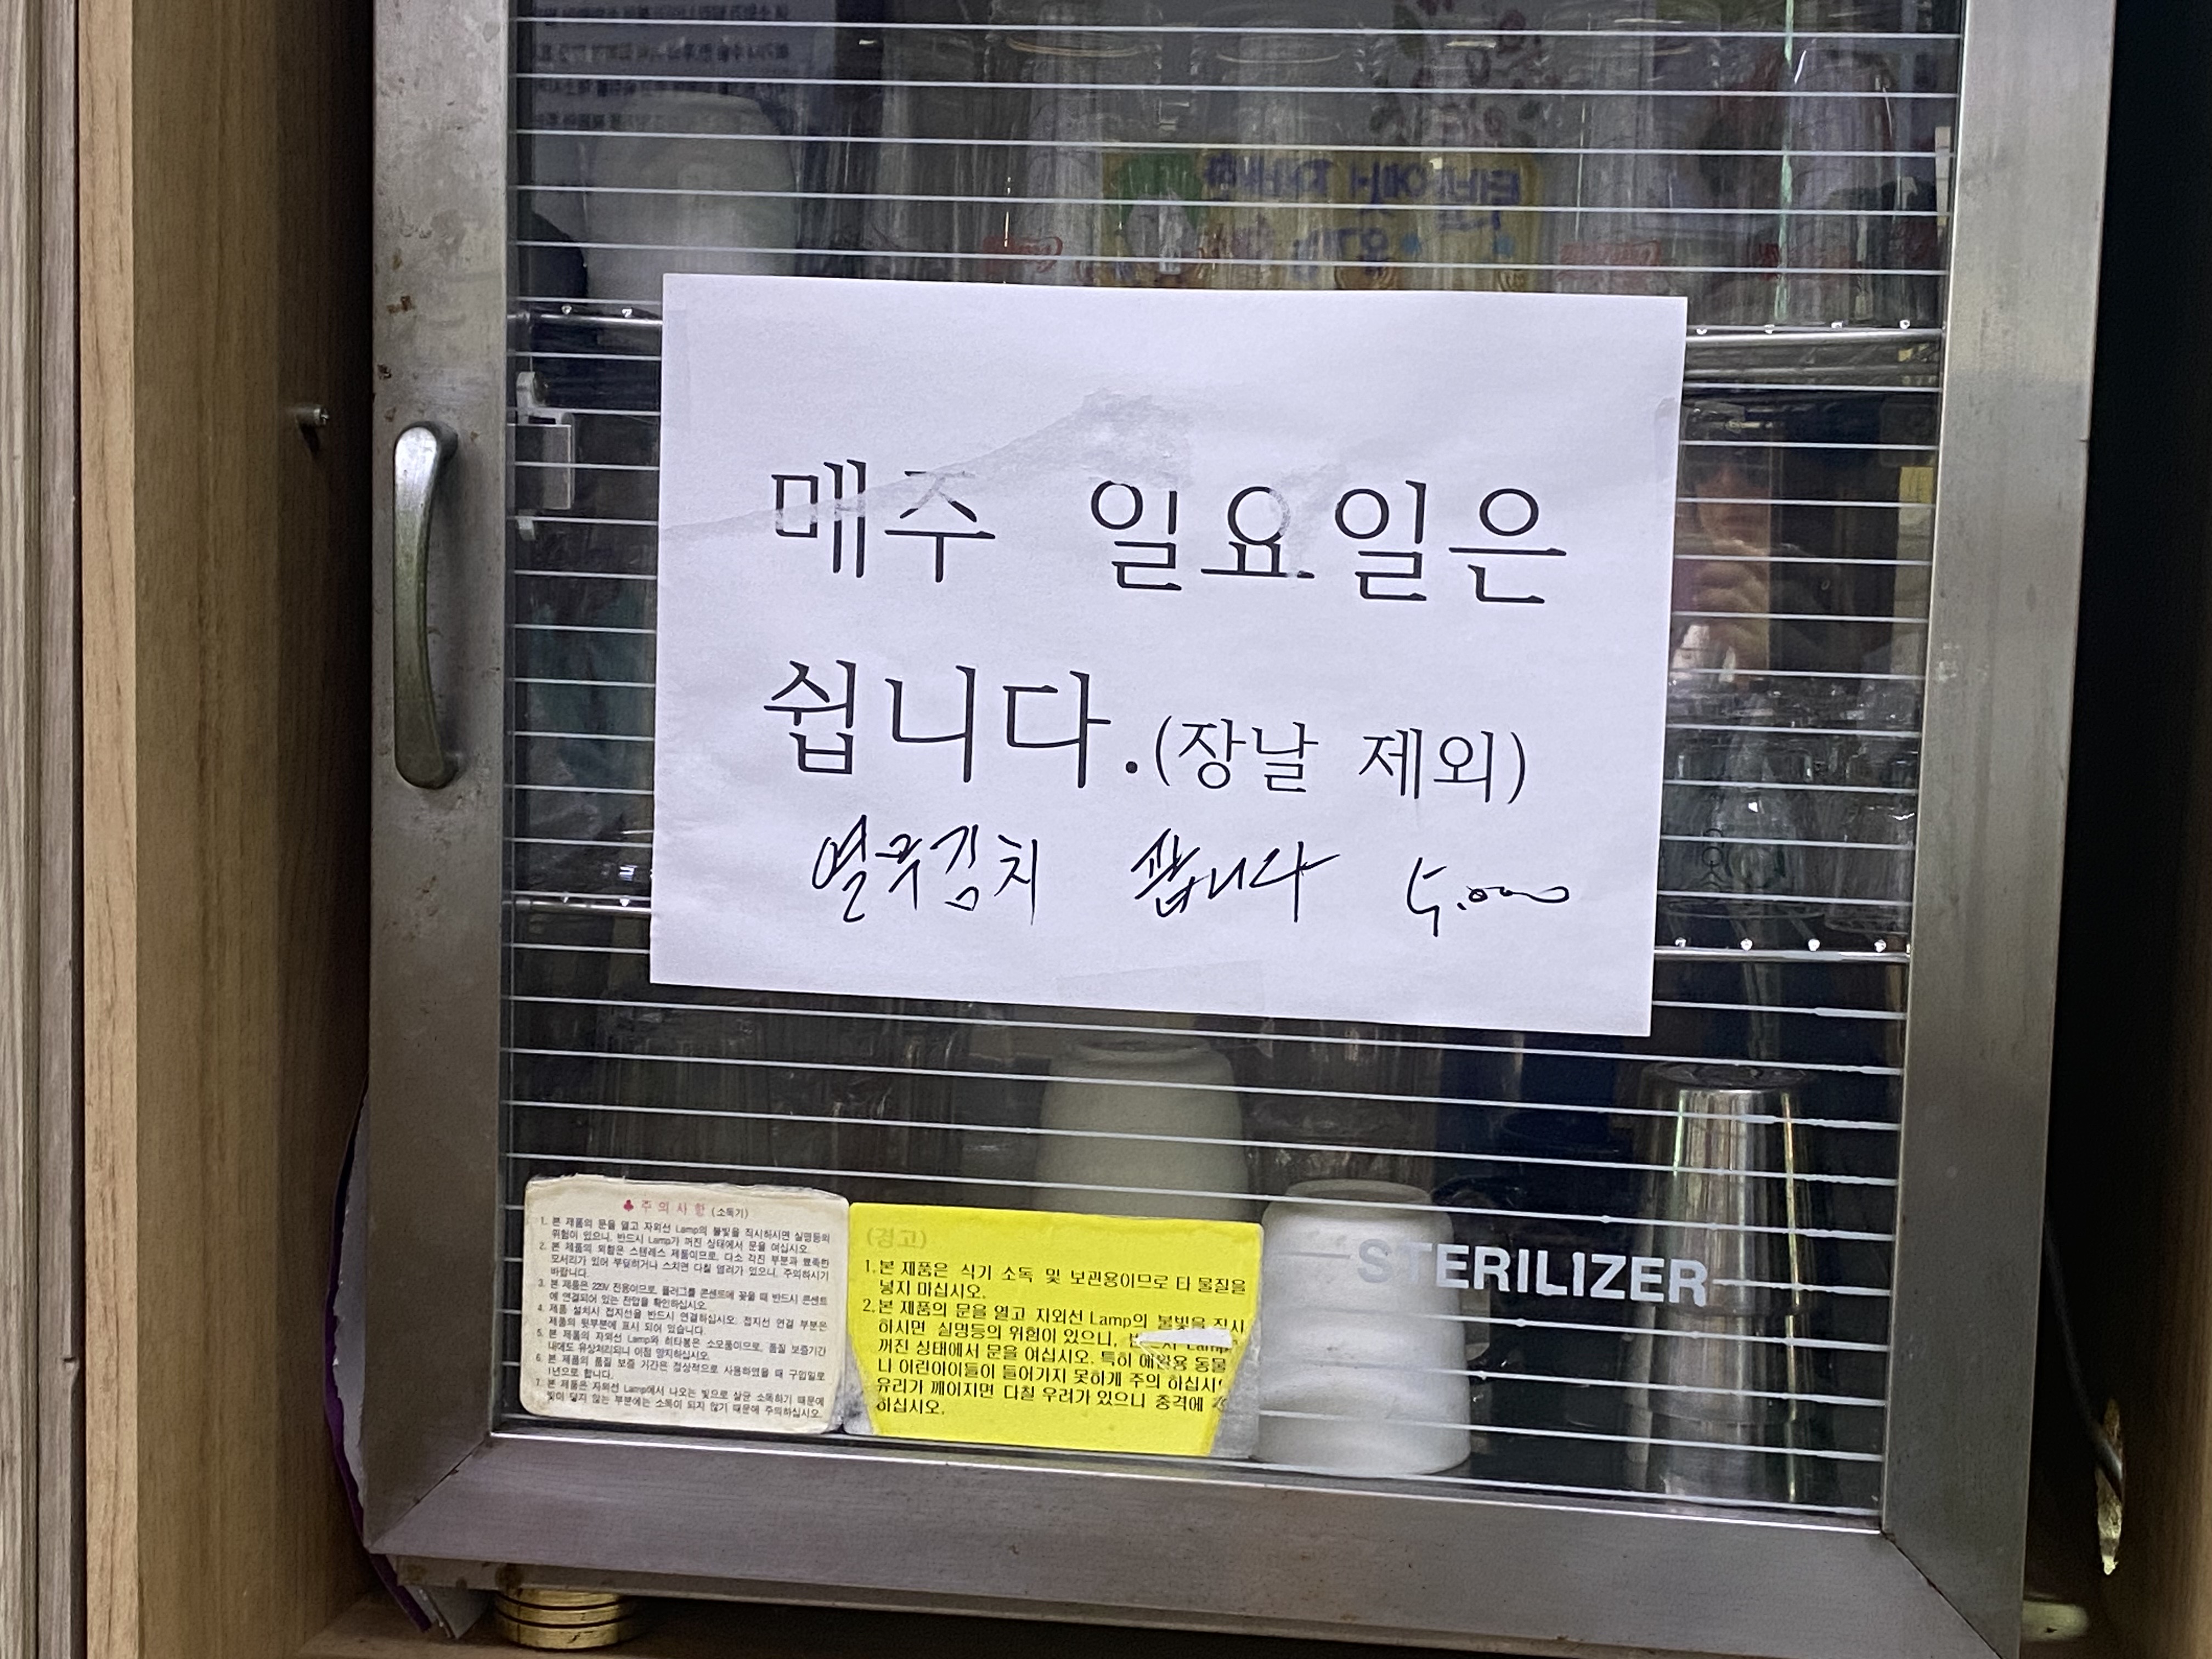 매주 일요일은
쉽니다.(장날 제외)
열무김치 팝니다 5.000
♣주의사항(소독기)
1. 본 제품의 문을 열고 자외선 Lamp의 불빛을 직시하시면 실명등의
위험이 있으니, 반드시 Lamp가 꺼진 상태에서 문을 여십시오.
2. 본 제품의 외함은 스텐레스 제품이므로, 다소 각진 부분과 뾰족한
모서리가 있어 부딪히거나 스치면 다칠 염려가 있으니, 주의하시기
바랍니다.
3. 본 제품은 220V 전용이므로, 플러그를 콘센트에 꽂을 때 반드시 콘센트
에 연결되어 있는 전압을 확인하십시오.
4. 제품 설치시 접지선을 반드시 연결하십시오. 접지선 연결 부분은
제품의 뒷부분에 표시 되어 있습니다.
5. 본 제품의 자외선 Lamp와 히타봉은 소모품이므로, 품질 보증기간
내에도 유상처리되니 이점 양지하십시오.
6. 본 제품의 품질 보증 기간은 정상적으로 사용하였을 때 구입일로
1년으로 합니다.
7. 본 제품은 자외선 Lamp에서 나오는 빛으로 살균 소독하기 때문에
빛이 닿지 않는 부분에는 소독이 되지 않기 때문에 주의하십시오.
(경고)
1.본 제품은 식기 소독 및 보관용이므로 타 물질을
넣지 마십시오.
2.본 제품의 문을 열고 자외선 Lamp의 불빛을 직시
하시면 실명등의 위험이 있으니, 반드시 Lamp
꺼진 상태에서 문을 여십시오. 특히 애완용 동물
나 어린아이들이 들어가지 못하게 주의 하십시
유리가 깨어지면 다칠 우려가 있으니 충격에
하십시오.
STERILIZER